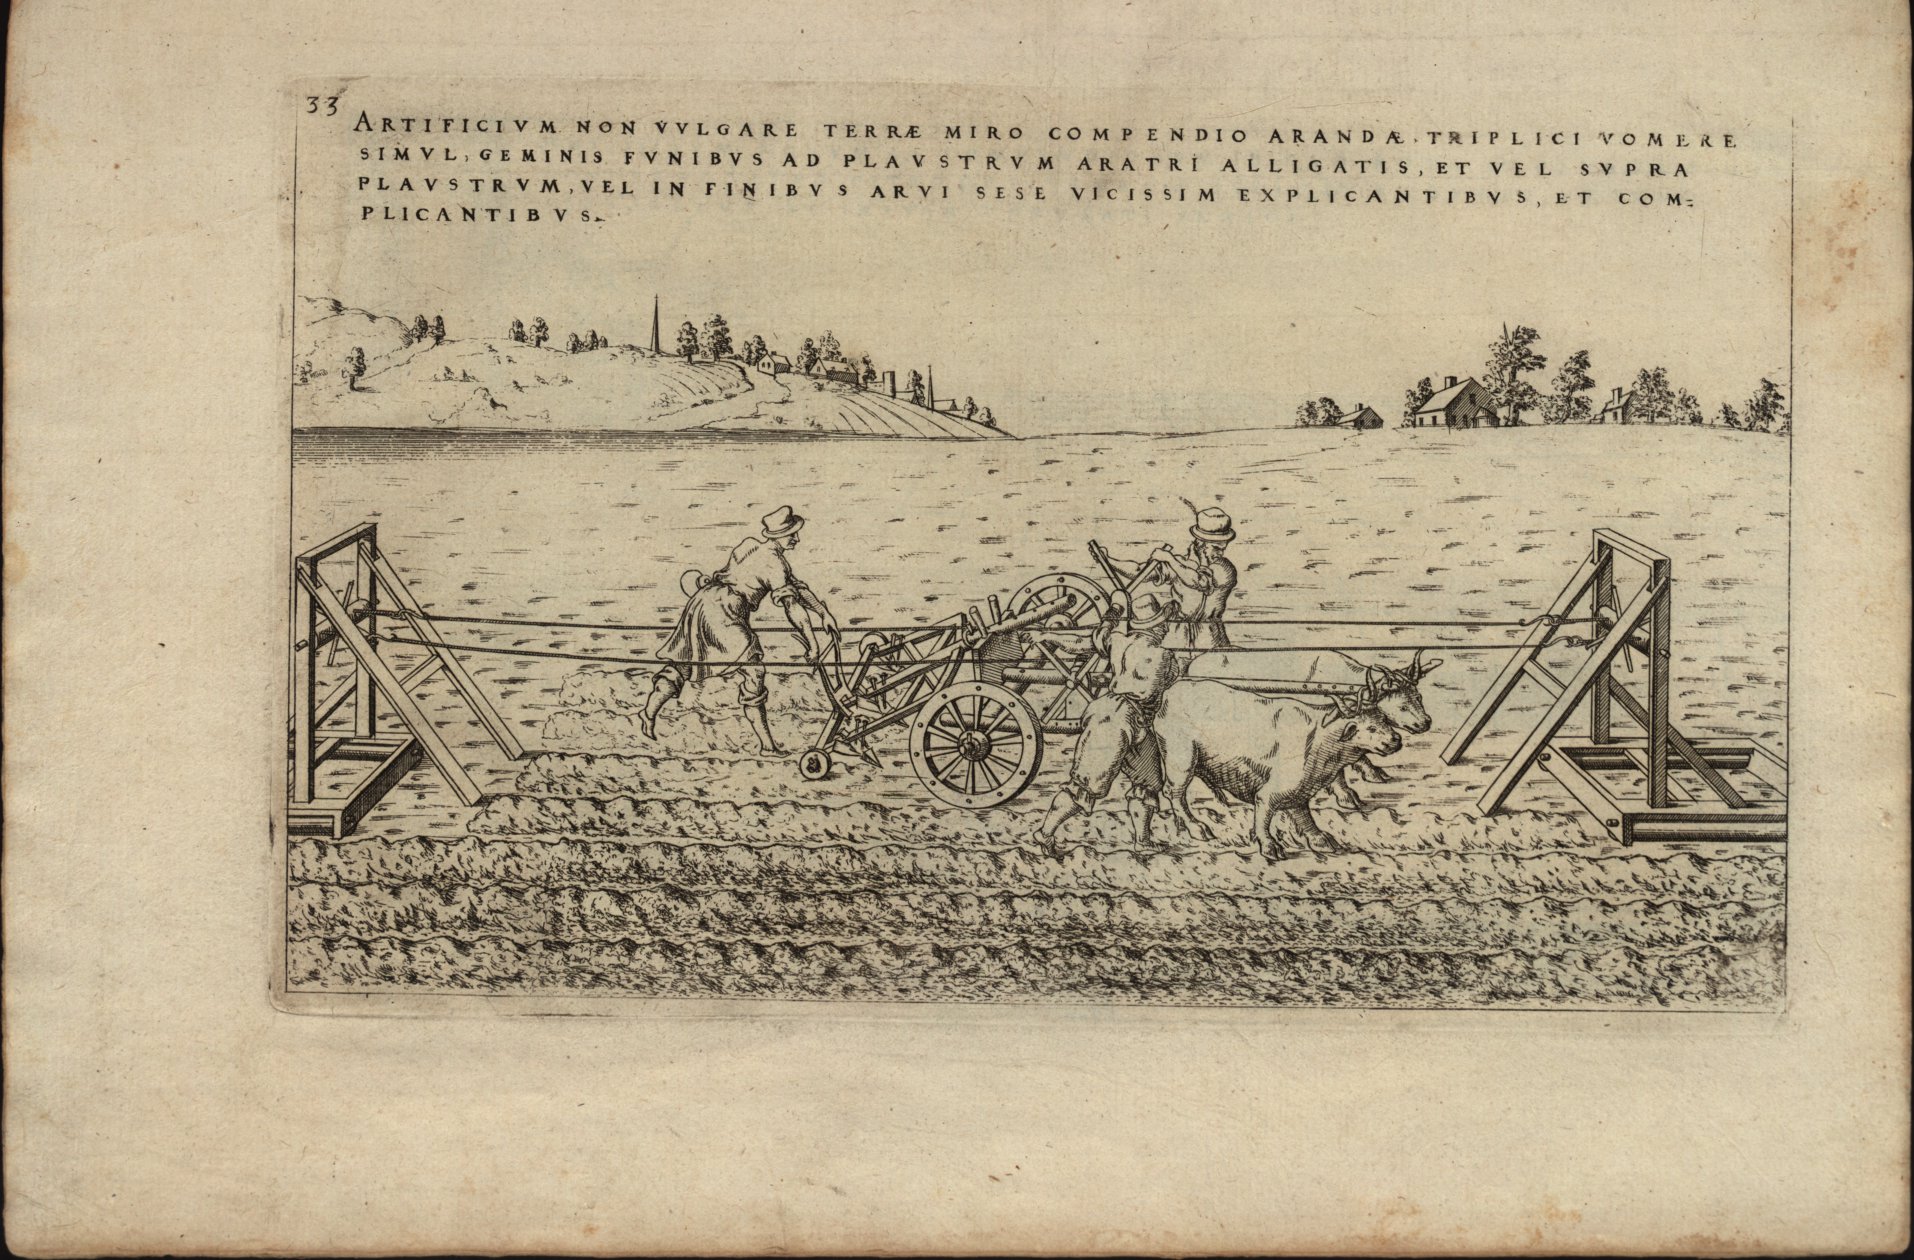 33
ARTIFICIVM NON VVLGARE TERRÆ MIRO COMPENDIO ARANDÆ, TRIPLICI VOMERE
SIMVL, GEMINIS FVNIBVS AD PLAVSTRVM ARATRI ALLIGATIS, ET VEL SVPRA
PLAVSTRVM, VEL IN FINIBVS ARVI SESE VICISSIM EXPLICANTIBVS, ET COM=
PLICANTIBVS.